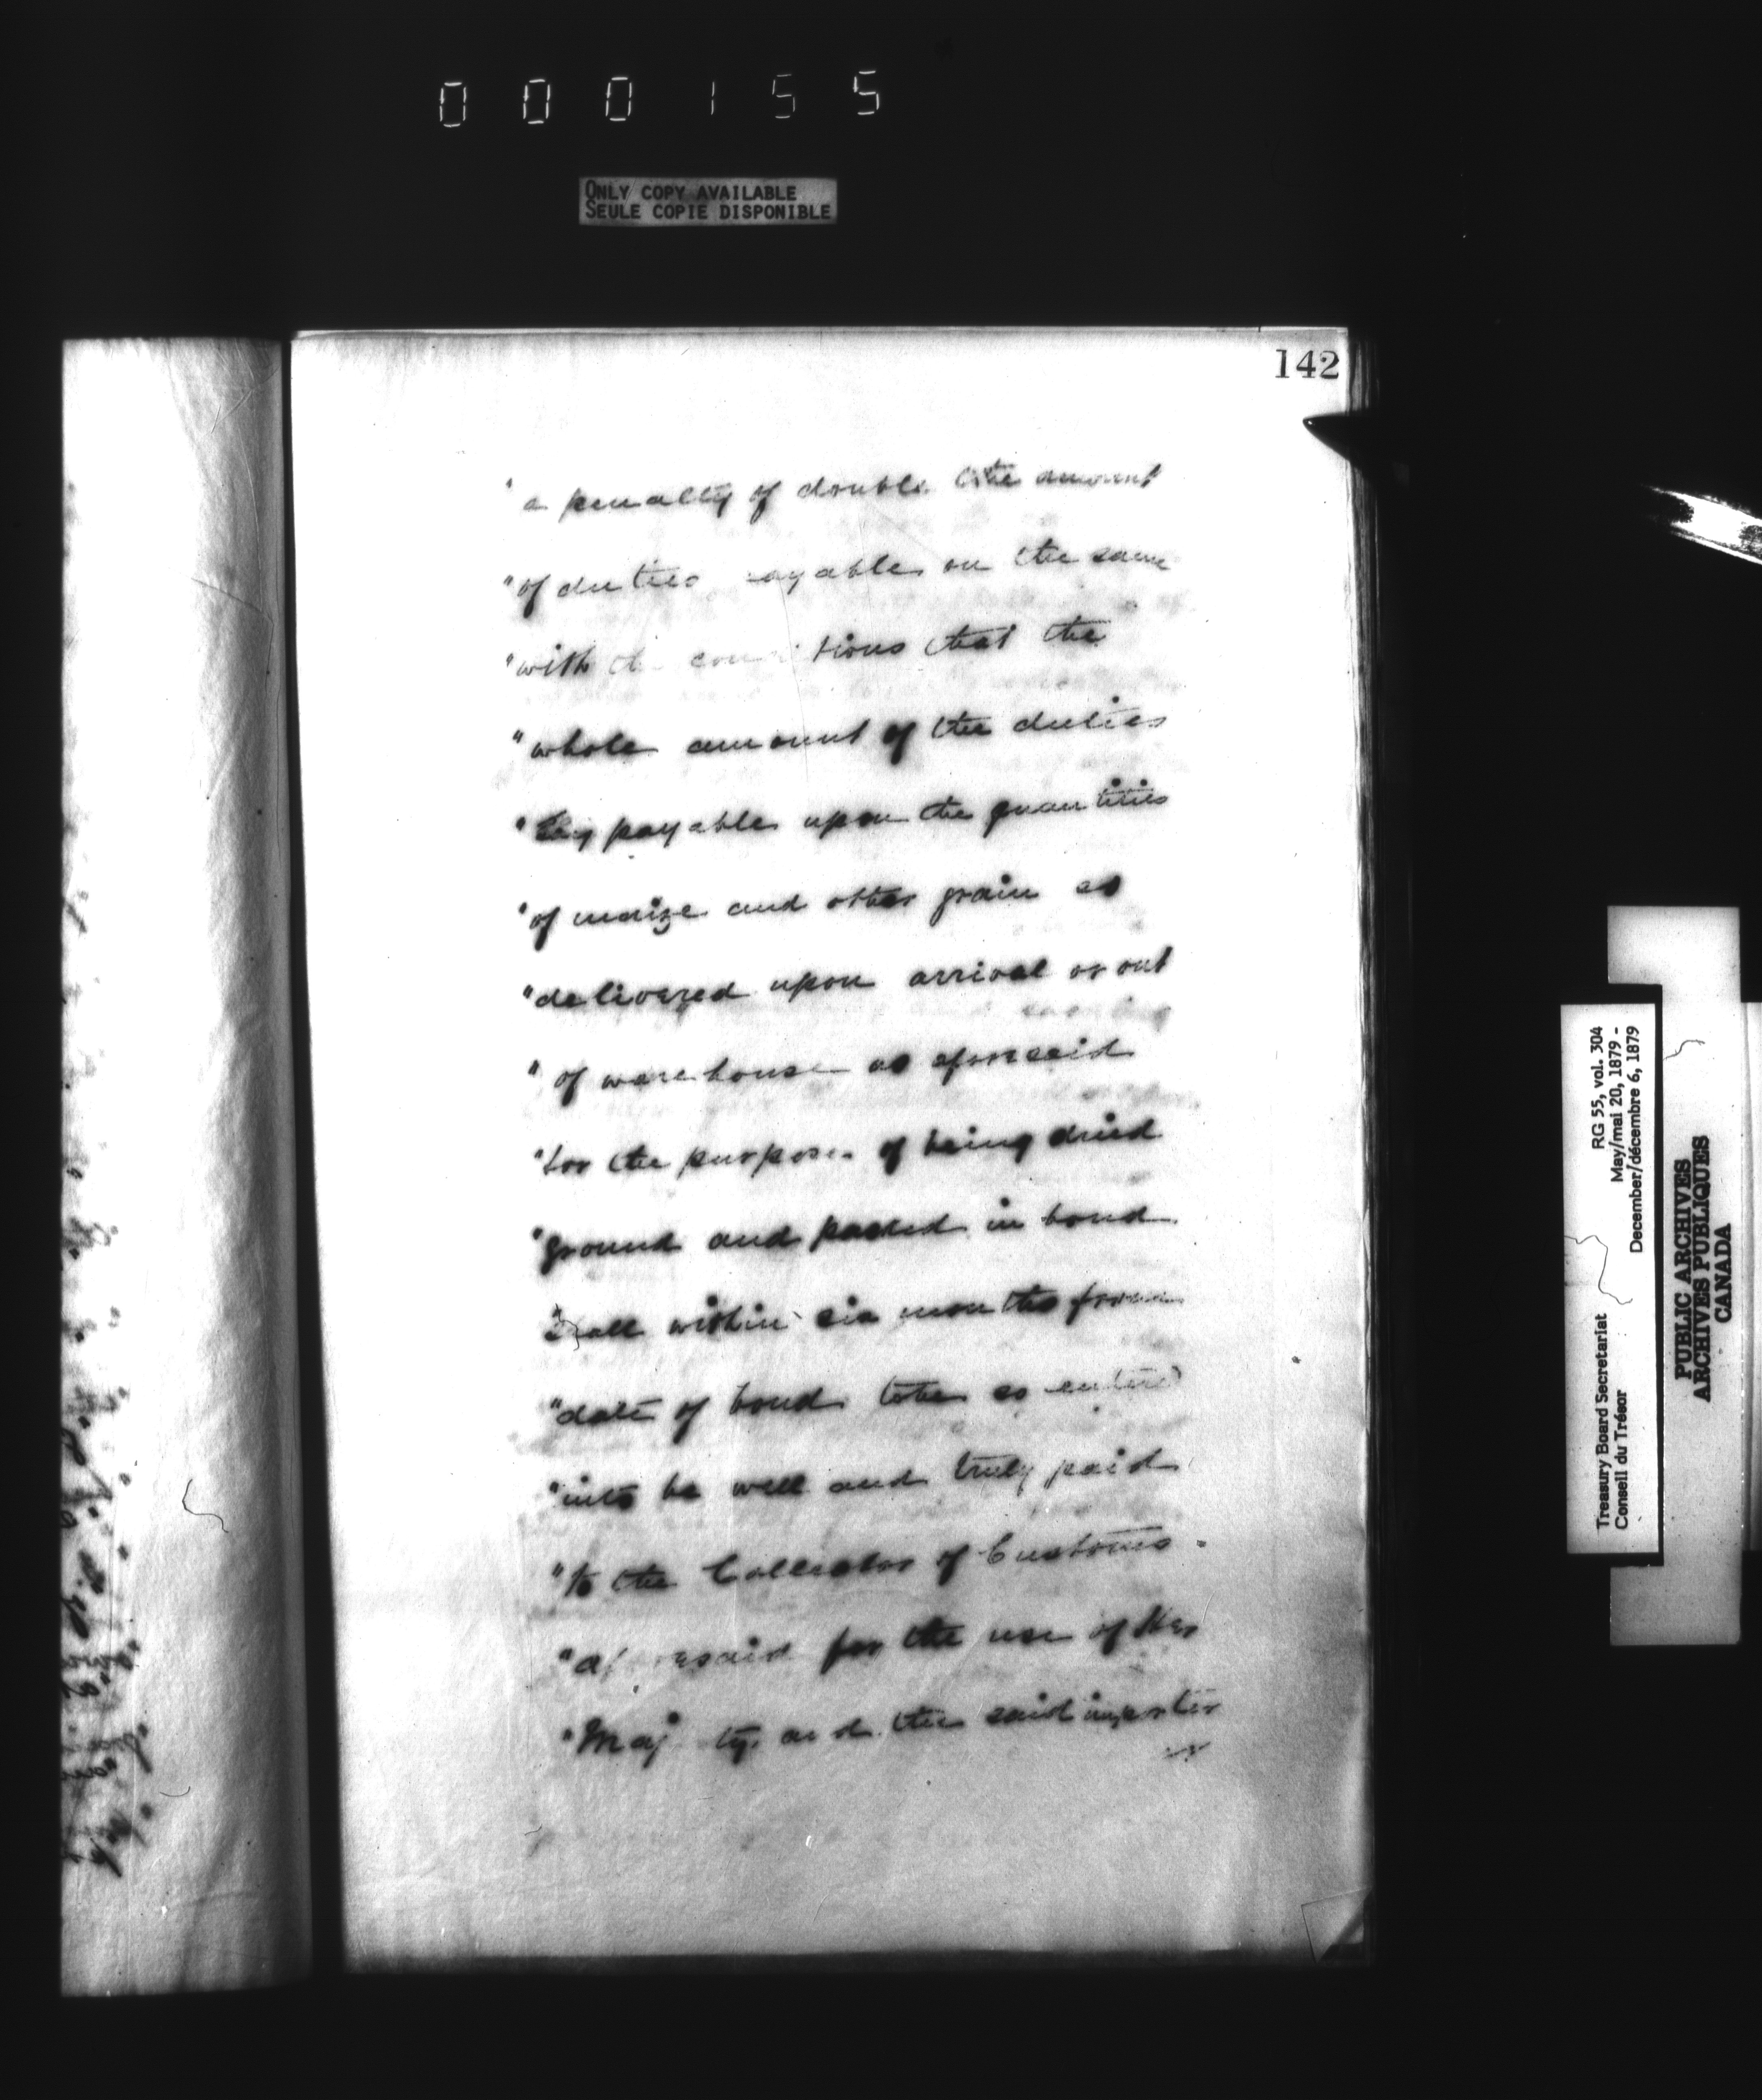 000155
ONLY COPY AVAILABLE
SEULE COPIE DISPONIBLE
142
" a penalty of double the amount
"of duties payable on the same
"with the conditions that the
"whole amount of the duties
" payable upon the quantities
"of maize and other grain as
"delivered upon arrival or out
" of warehouse as aforesaid
"for the purpose of being dried
"ground and packed in bond
"shall within six months from
"date of bond to be so entered
"into be well and truly paid
"to the Collector of Customs
"aforesaid for the use of Her
"Majesty, and the said importer
RG 55, vol. 304
May/mai 20, 1879 -
December/décembre 6, 1879
Treasury Board Secretariat
Conseil du Trésor
PUBLIC ARCHIVES
ARCHIVES PUBLIQUES
CANADA